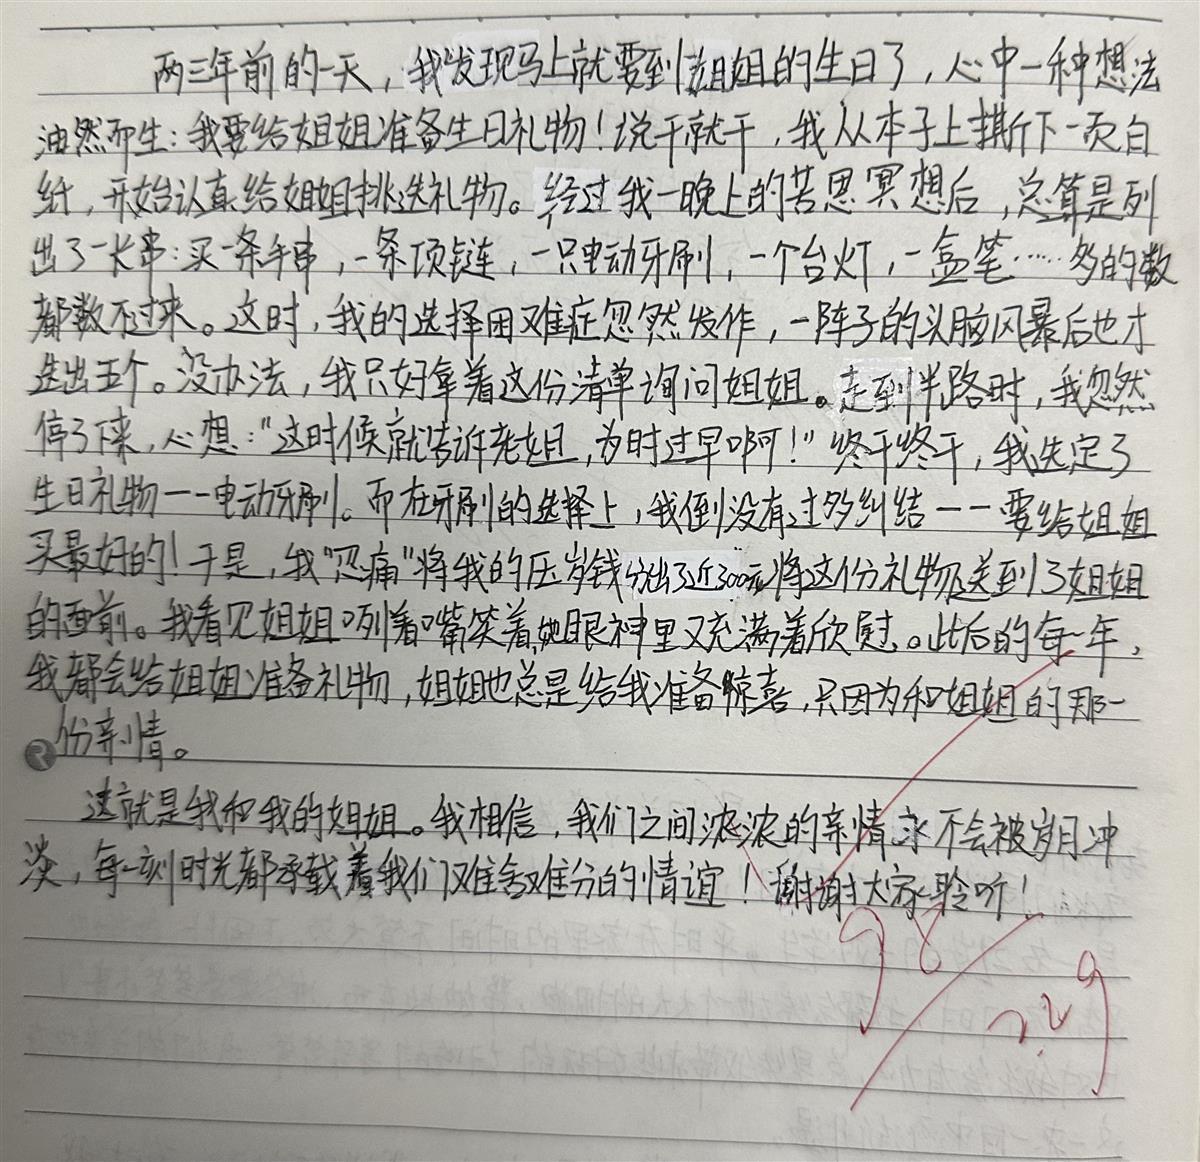 两三年前的一天，我发现马上就要到姐姐的生日了，心中一种想法
油然而生：我要给姐姐准备生日礼物！说干就干，我从本子上撕下一页白
纸，开始认真给姐姐挑选礼物。经过我一晚上的苦思冥想后，总算是列
出了一长串：买一条手串，一条项链，一只电动牙刷，一个台灯，一盒笔……多的数
都数不过来。这时，我的选择困难症忽然发作，一阵子的头脑风暴后也才
选出五个。没办法，我只好拿着这份清单询问姐姐。走到半路时，我忽然
停了下来，心想：“这时候就告诉老姐，为时过早啊！”终于终于，我选定了
生日礼物——电动牙刷。而在牙刷的选择上，我倒没有过多纠结——要给姐姐
买最好的！于是，我“忍痛”将我的压岁钱分出了近300元，将这份礼物送到了姐姐
的面前。我看见姐姐咧着嘴笑着，她眼神里又充满着欣慰。此后的每一年，
我都会给姐姐准备礼物，姐姐也总是给我准备惊喜，只因为和姐姐的那一
份亲情。
这就是我和我的姐姐。我相信，我们之间浓浓的亲情永不会被岁月冲
淡，每一刻时光都承载着我们难舍难分的情谊！谢谢大家聆听！
98
2.29